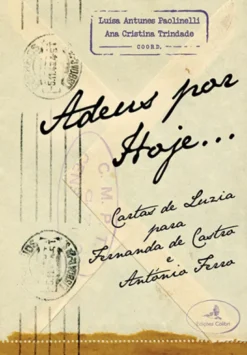 Luísa Antunes Paolinelli
Ana Cristina Trindade
COORD.
Adeus por
Hoje...
Cartas de Luzia
para
Fernanda de Castro
e
António Ferro
Edições Colibri